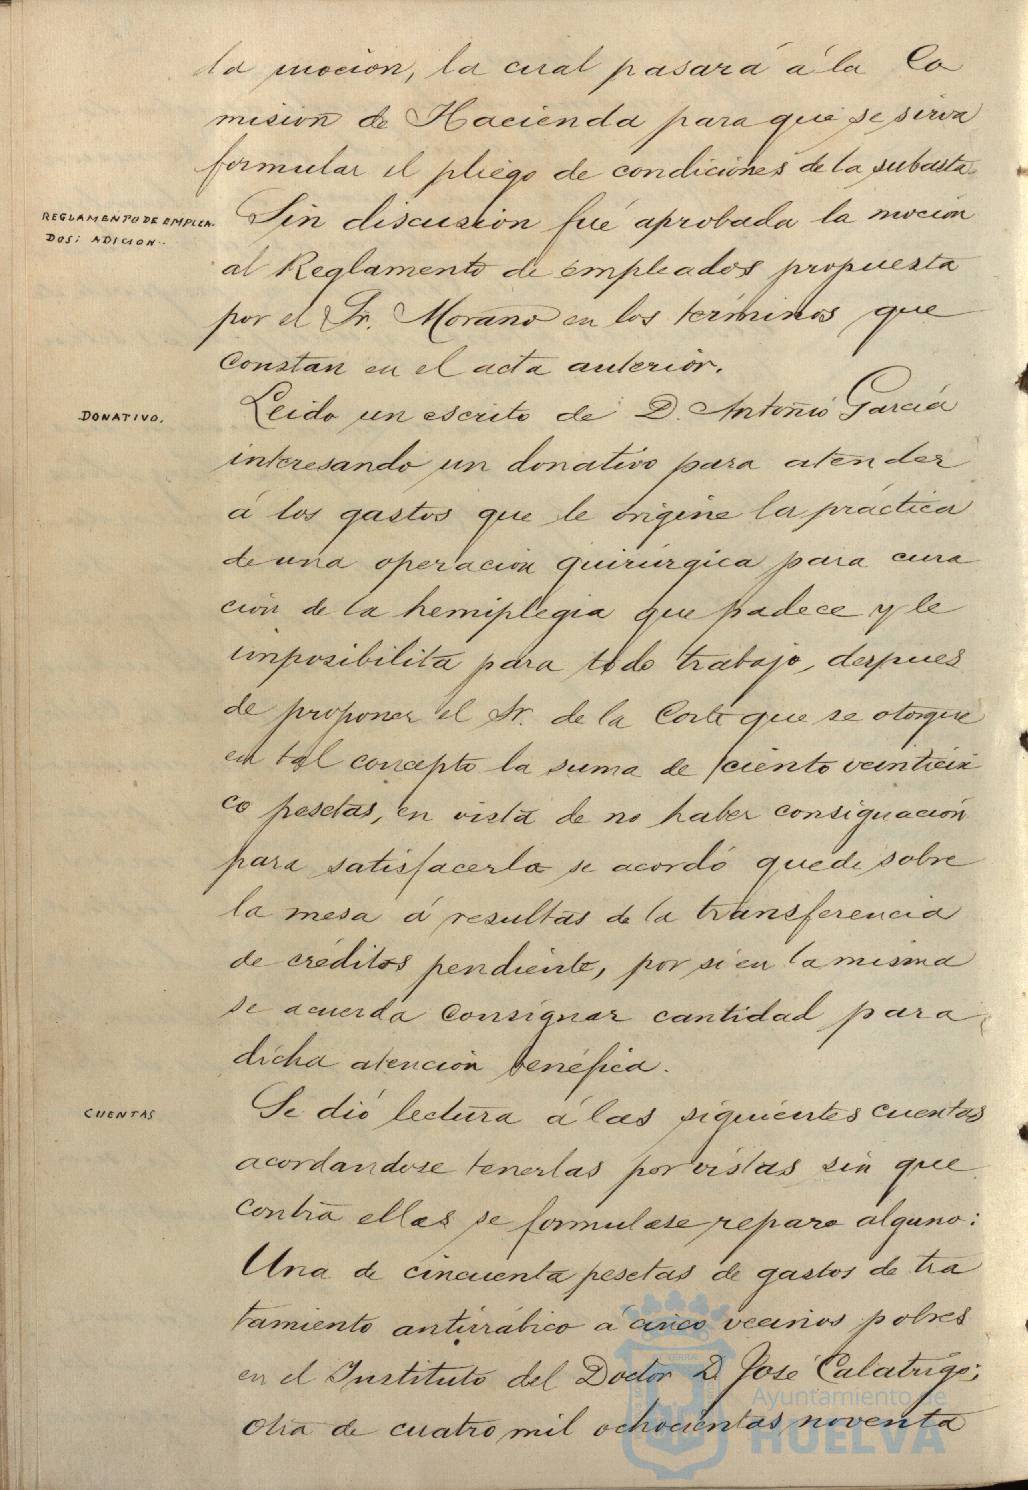 da moción, la cual pasará á la Co
misión de Hacienda para que se sirva
formular el pliego de condiciones de la subasta.
REGLAMENTO DE EMPLEA-
DOS: ADICION.
Sin discusión fué aprobada la moción
al Reglamento de empleados propuesta
por el Sr. Morano en los términos que
constan en el acta anterior.
DONATIVO.
Leido un escrito de D. Antonio García
interesando un donativo para atender
á los gastos que le origine la práctica
de una operación quirúrgica para cura
ción de la hemiplegia que padece y le
imposibilita para todo trabajo, despues
de proponer el Sr. de la Corte que se otorgue
en tal concepto la suma de ciento veinticin
co pesetas, en vista de no haber consignación
para satisfacerla se acordó quede sobre
la mesa á resultas de la transferencia
de créditos pendiente, por si en la misma
se acuerda consignar cantidad para
dicha atención benéfica.
CUENTAS
Se dió lectura á las siguientes cuentas
acordandose tenerlas por vistas sin que
contra ellas se formulase reparo alguno:
Una de cincuenta pesetas de gastos de tra
tamiento antirrábico á cinco vecinos pobres
en el Instituto del Doctor D. José Calatrigo;
otra de cuatro mil ochocientas noventa
Ayuntamiento de
HUELVA